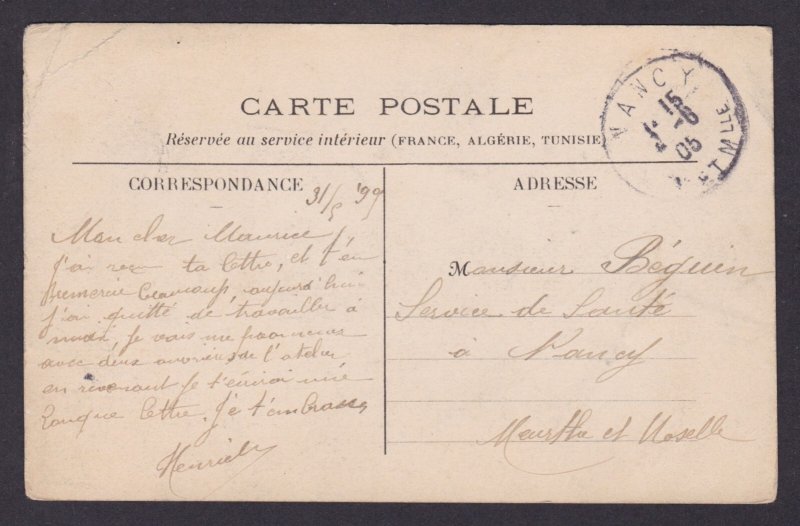 CARTE POSTALE
Réservée au service intérieur (FRANCE, ALGÉRIE, TUNISIE)
NANCY
15
05
CORRESPONDANCE
ADRESSE
Mon cher Maurice
j'ai reçu ta lettre, et t'en
remercie beaucoup, aujourd'hui
j'ai quitté de travailler à
midi, je vais me promener
avec deux ouvrières de l'atelier
en revenant je t'envoi une
longue lettre. Je t'embrasse
Monsieur Béguin
Service de Santé
à Nancy
Meurthe et Moselle